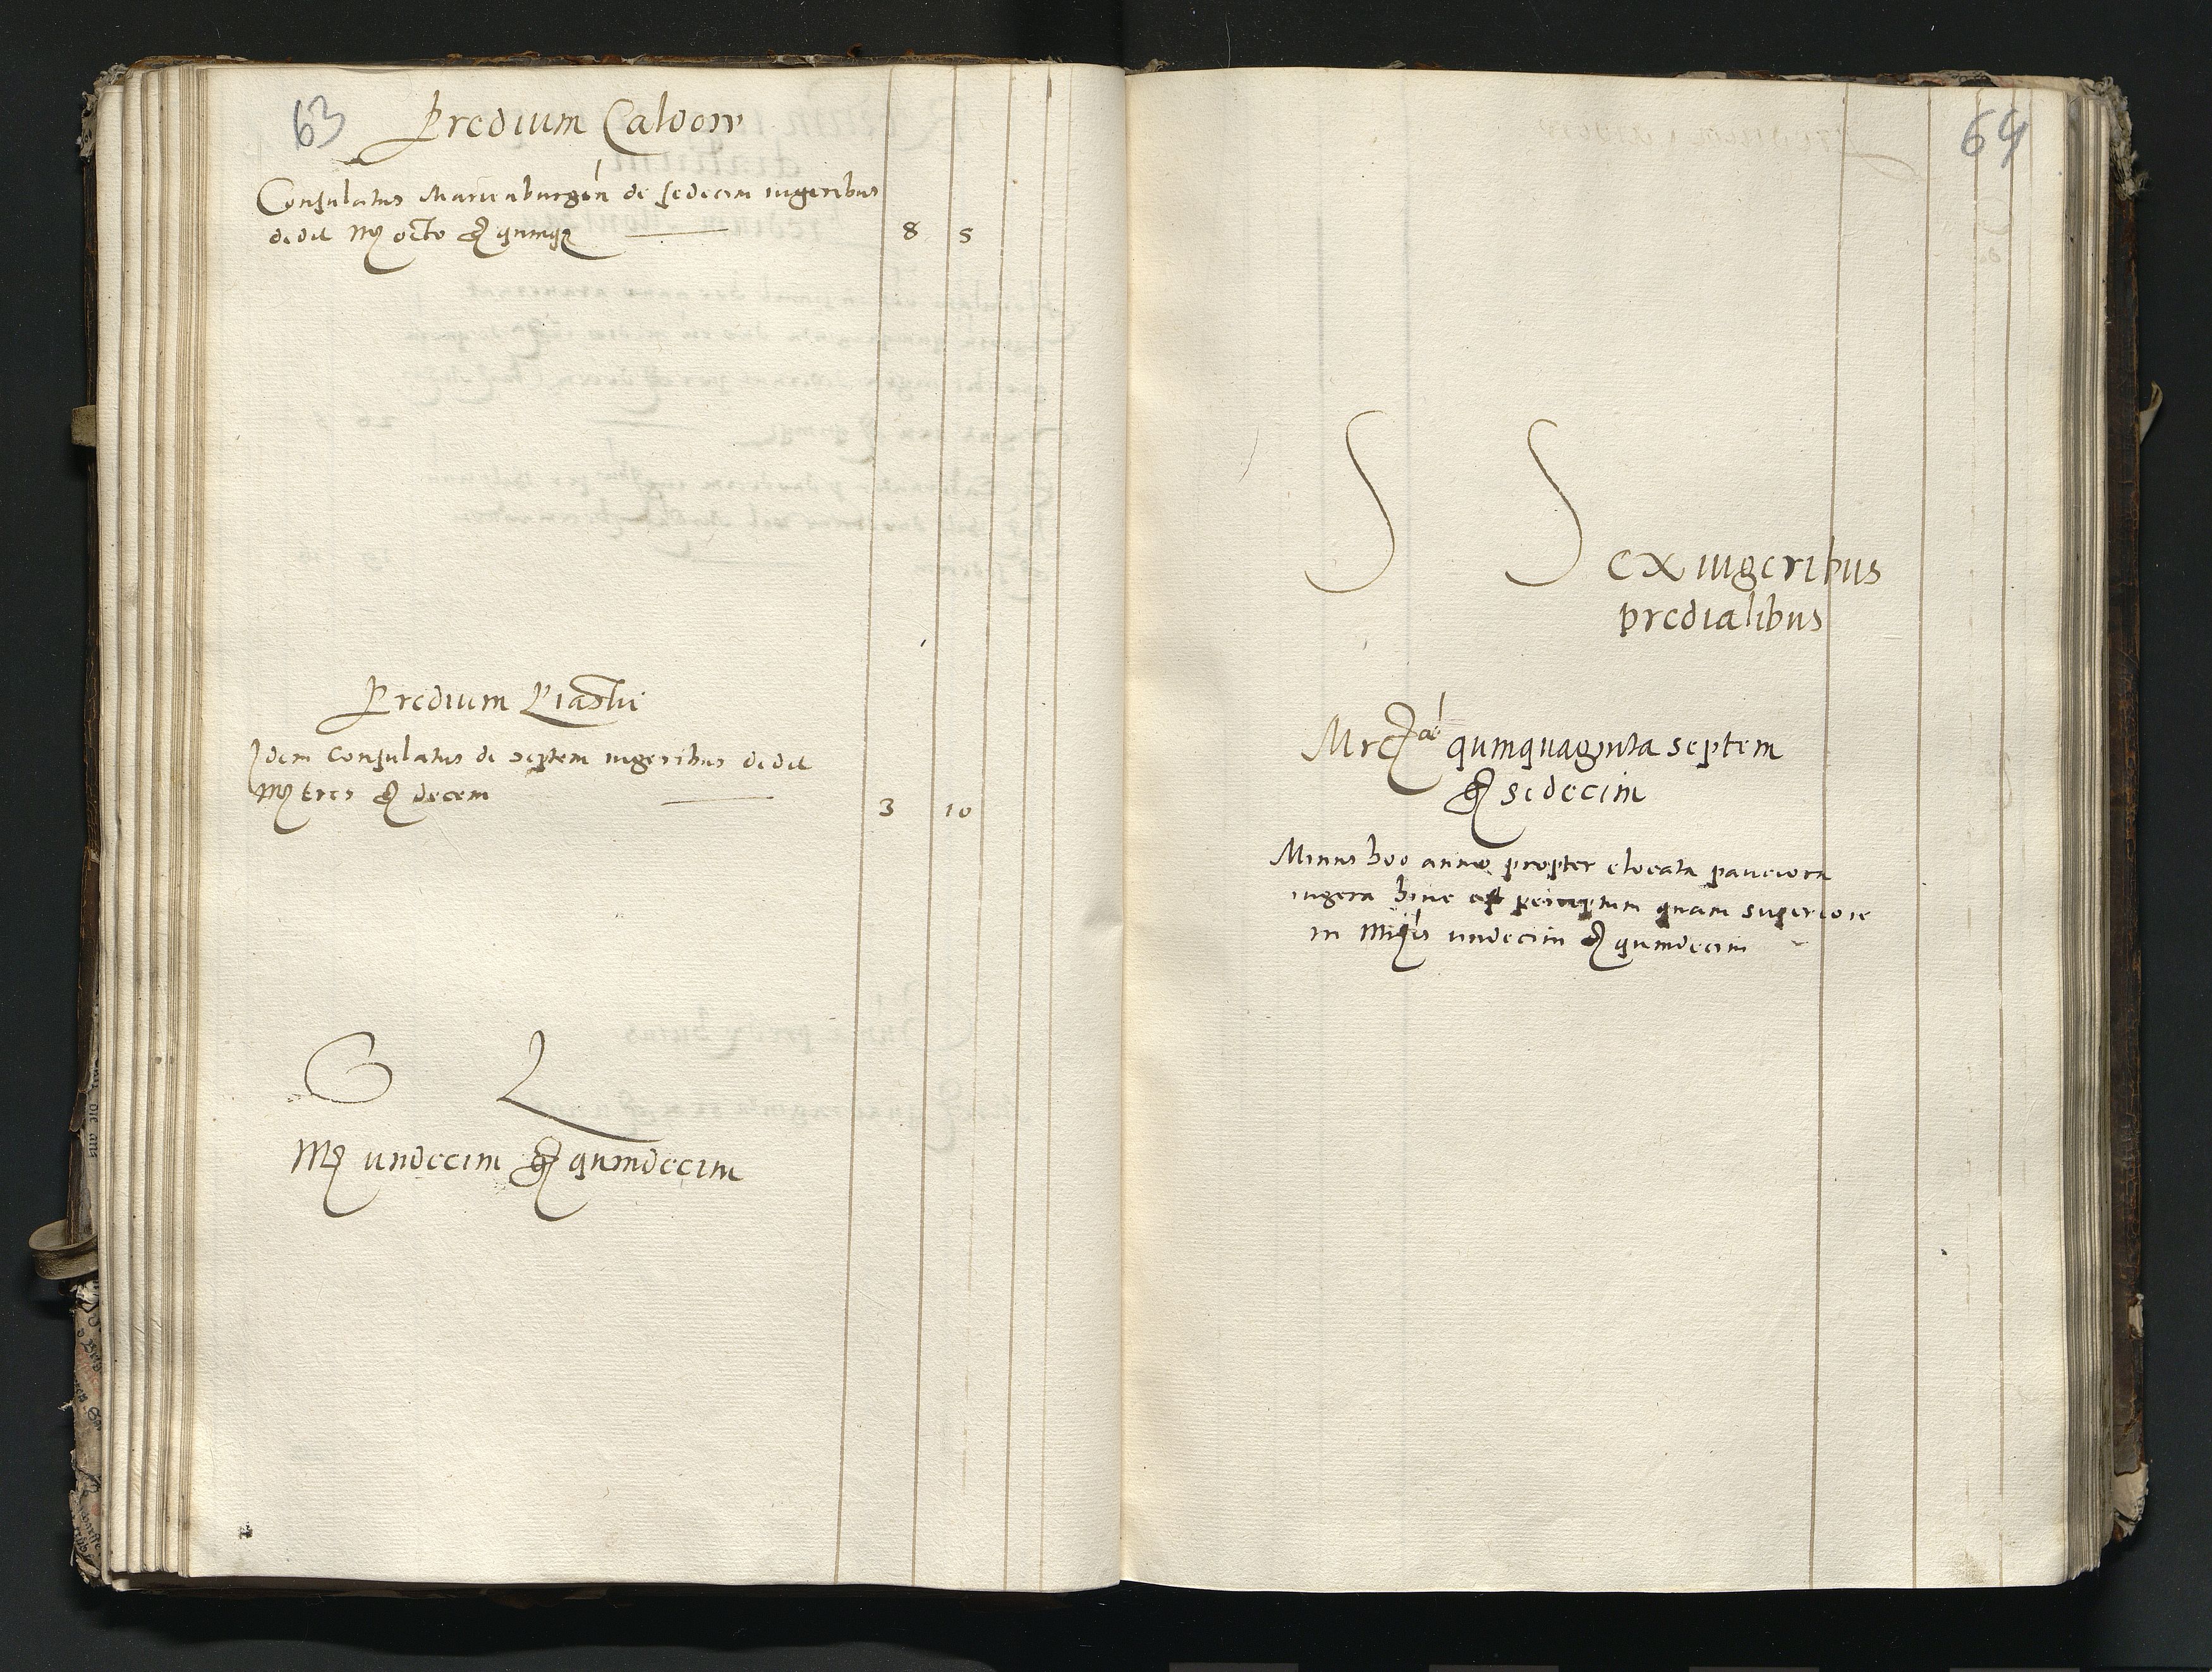 63
Predium Caldow
Consulatus Marienburgen de sedecim iugeribus
dedit Mr octo gr quinque 8 5
Predium Piastki
Idem Consulatus de septem iugeribus dedit
Mr tres gr decem 3 10
L
Mr undecim gr quindecim
64
S S ex iugeribus
predialibus
Mrcae quinquaginta septem
gr sedecim
Minus hoc anno propter elocata pauciora
iugera hinc est perceptum quam superiore
in Mrcis undecim gr quindecim